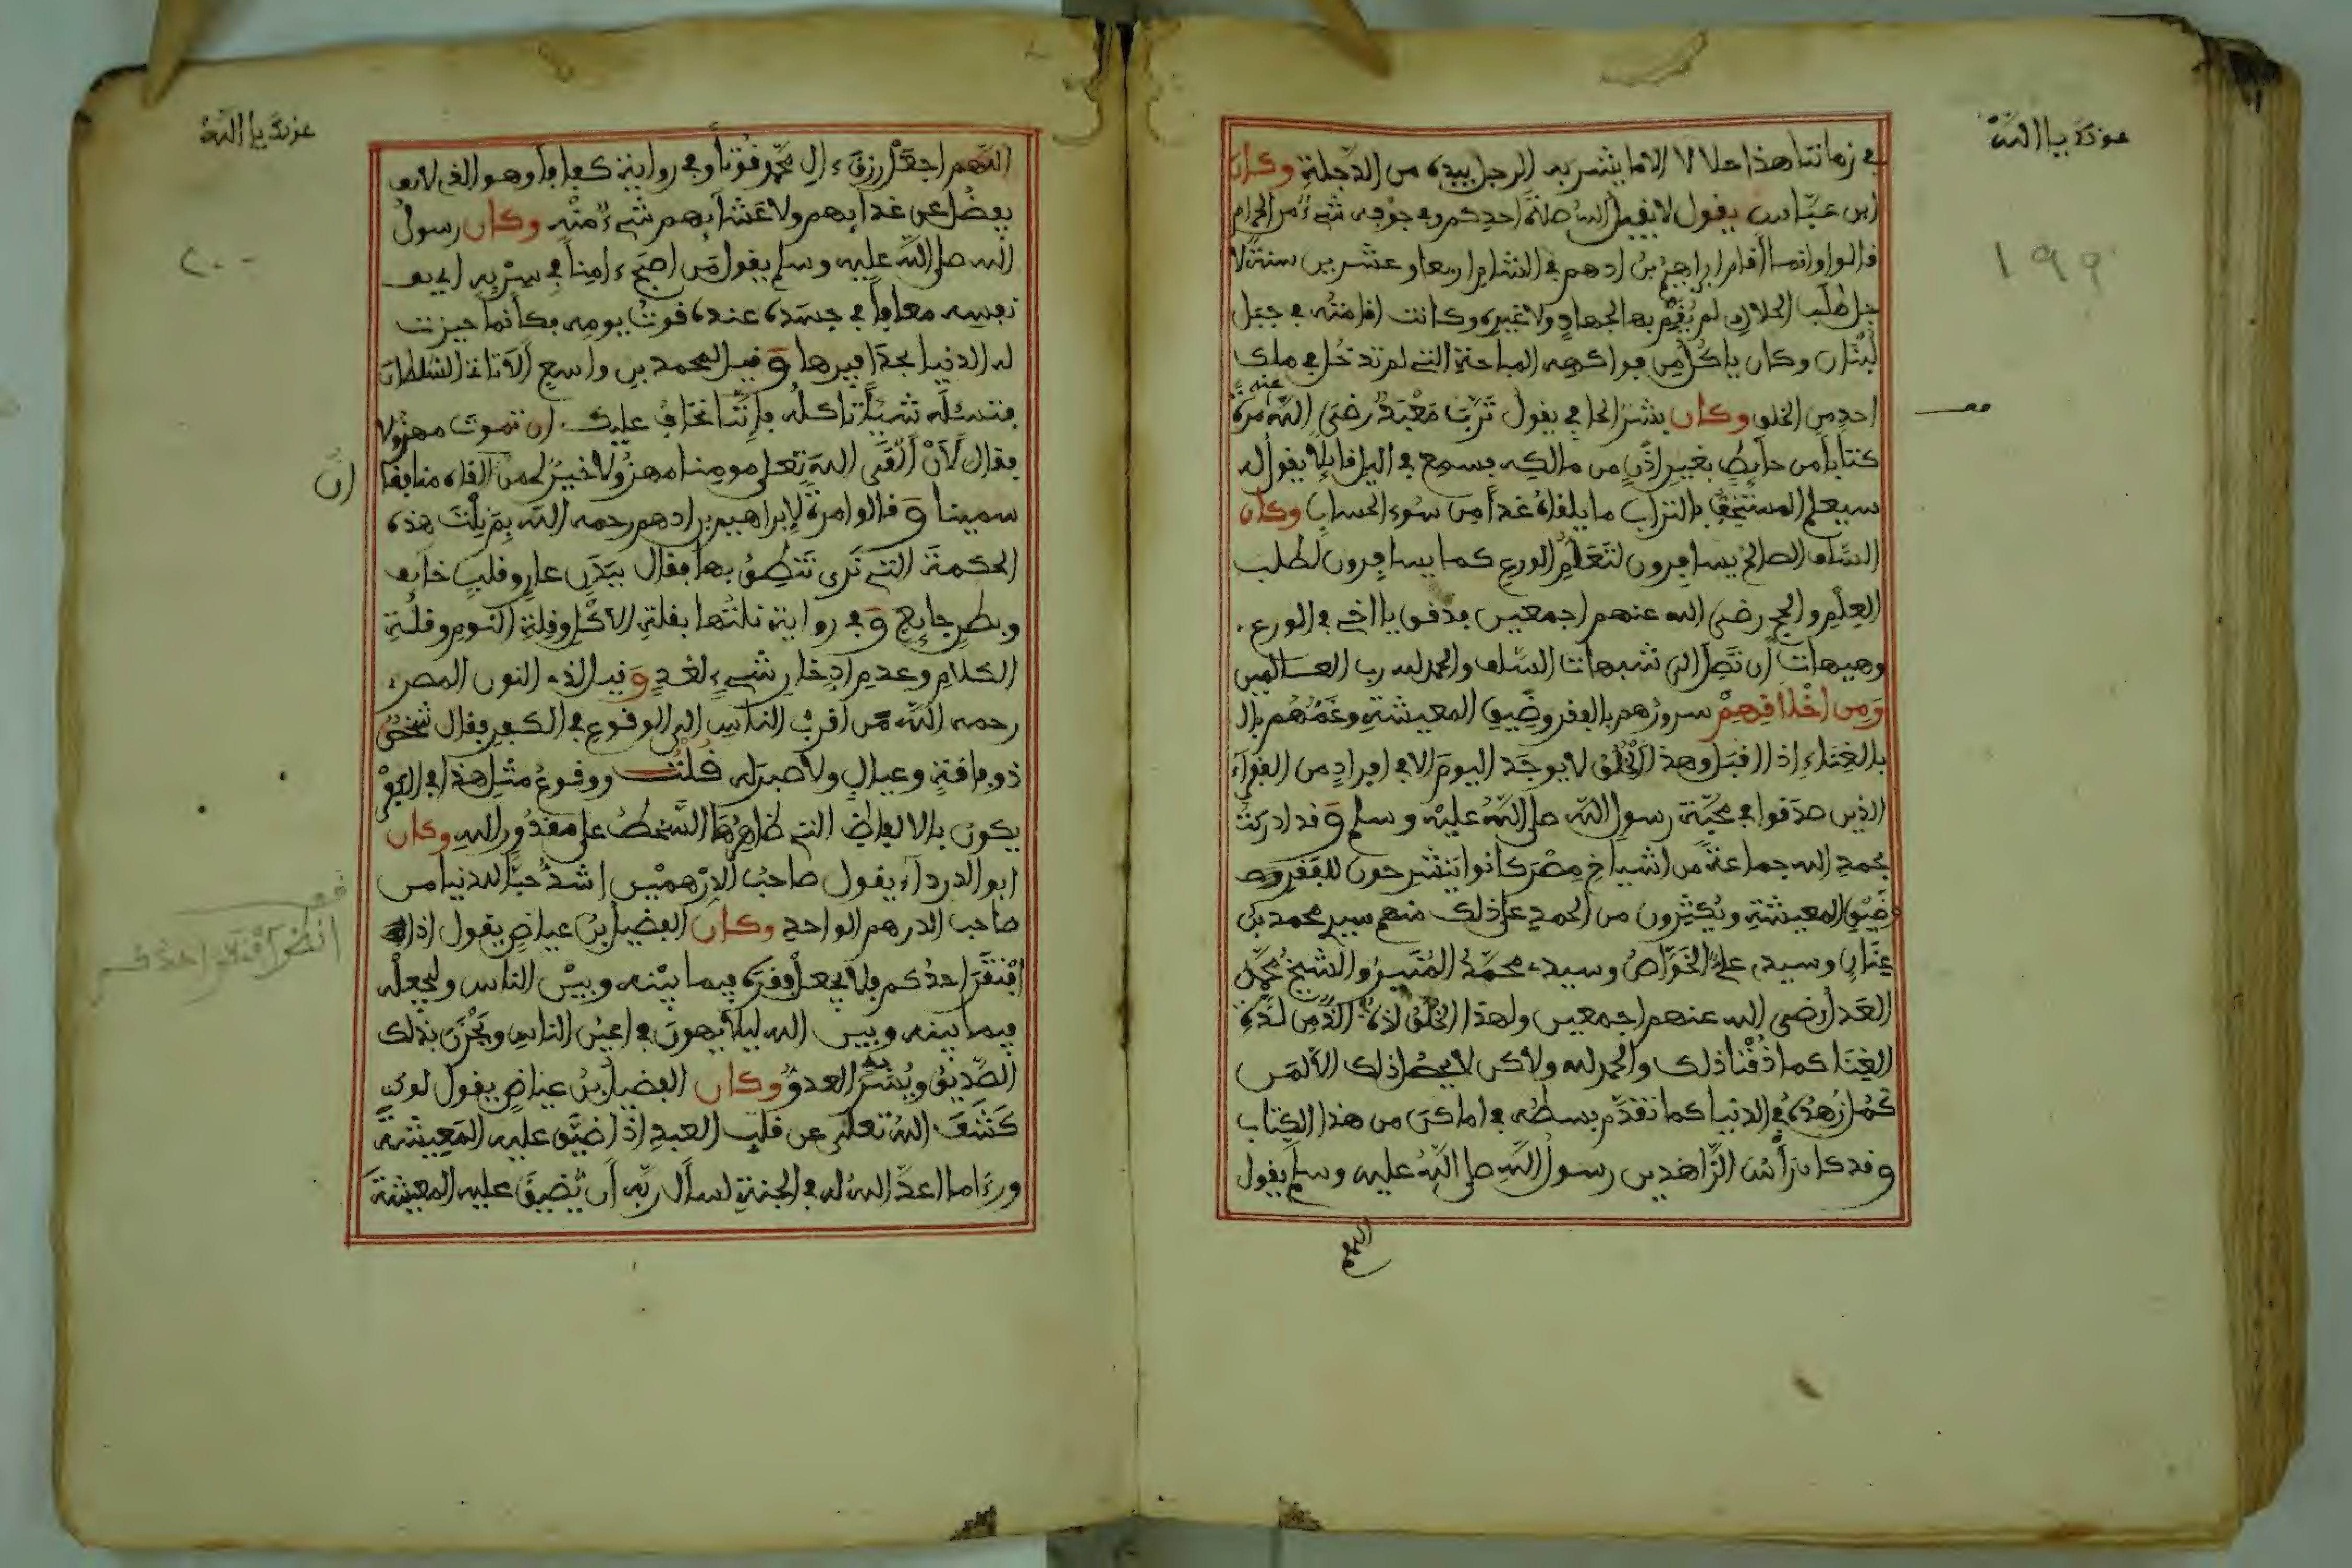 عونك يا الله
١٩٩
في زماننا هذا حلالا الا ما يشربه الرجل بيده من الدجلة وكان
ابن عباس يقول لا يقبل الله صلاة احدكم وفي جوفه شيء من الحرام
قالوا وانما اقام ابراهيم بن ادهم في الشام اربعا وعشرين سنة لا
جل طلب الحلال لم يقم بها لجهاد ولا غيره وكانت اقامته في جبل
لبنان وكان ياكل من فواكهه المباحة التي لم تدخل في ملك
احد من الخلق وكان بشر الحافي يقول ترب معبد رضي الله عنه مرة
كتابا من حايط بغير اذن من مالكه فسمع في الليل قايلا يقول له
سيعلم المستخف بالتراب ما يلقاه غدا من سوء الحساب وكان
السلف الصالح يسافرون لتعلم الورع كما يسافرون لطلب
العلم والحج رضي الله عنهم اجمعين فدقق يا اخي في الورع
وهيهات ان تصل الى شبهات السلف والحمد لله رب العالمين
ومن اخلاقهم سرورهم بالفقر وضيق المعيشة وغمهم بال
بالغناء اذا اقبل وهذا الخلق لا يوجد اليوم الا في افراد من الفقراء
الذين صدقوا في محبة رسول الله صلى الله عليه وسلم وقد ادركت
بحمد الله جماعة من اشياخ مصر كانوا ينشرحون للفقر وص
وضيق المعيشة ويكثرون من الحمد على ذلك منهم سيدي محمد بن
عنان وسيدي علي الخواص وسيدي محمد المنير والشيخ محمد
العدل رضي الله عنهم اجمعين ولهذا الخلق لذة الذ من لذة
الغنا كما ذقنا ذلك والحمد لله ولاكن لا يحصل ذلك الا لمن
كمل زهده في الدنيا كما تقدم بسطه في اماكن من هذا الكتاب
وقد كان رأس الزاهدين رسول الله صلى الله عليه وسلم يقول
اللهم
عونك يا الله
٢٠٠
اللهم اجعل رزق ءال محمد قوتا وفي رواية كفافا وهو الذي لا
يفضل عن غدايهم ولا عشايهم شيء منه وكان رسول
الله صلى الله عليه وسلم يقول من اصبح ءامنا في سربه اي في
نفسه معافا في جسده عنده قوت يومه فكأنما حيزت
له الدنيا بحذافيرها وقيل لمحمد بن واسع ألا تاتي السلطان
فتسئله شيئا تاكله فاننا نخاف عليك ان تموت مهزولا
فقال لأن ألقى الله تعلى مومنا مهزولا خير لي من ان القاه منافقا
سمينا وقالوا مرة لابراهيم بن ادهم رحمه الله بم نلت هذه
الحكمة التي نرى تنطق بها فقال ببدن عار وقلب خايف
وبطن جايع وفي رواية نلتها بقلة الاكل وقلة النوم وقلة
الكلام وعدم ادخار شيء لغد وقيل لذي النون المصري
رحمه الله من اقرب الناس الى الوقوع في الكفر فقال شخص
ذو فاقة وعيال ولا صبر له قلت ووقوع مثل هذا في الكفر
يكون بالالفاظ التي ظاهرها السخط على مقدور الله وكان
ابو الدرداء يقول صاحب الدرهمين اشد حبا للدنيا من
صاحب الدرهم الواحد وكان الفضيل بن عياض يقول اذا
افتقر احدكم فلا يجعل فقره فيما بينه وبين الناس وليجعله
فيما بينه وبين الله ليلا يهون في اعين الناس ويحزن بذلك
الصديق ويسر العدو وكان الفضيل بن عياض يقول لو
كشف الله تعلى عن قلب العبد اذا ضيق عليه المعيشة
وراى ما اعد الله له في الجنة لسأل ربه أن يضيق عليه المعيشة